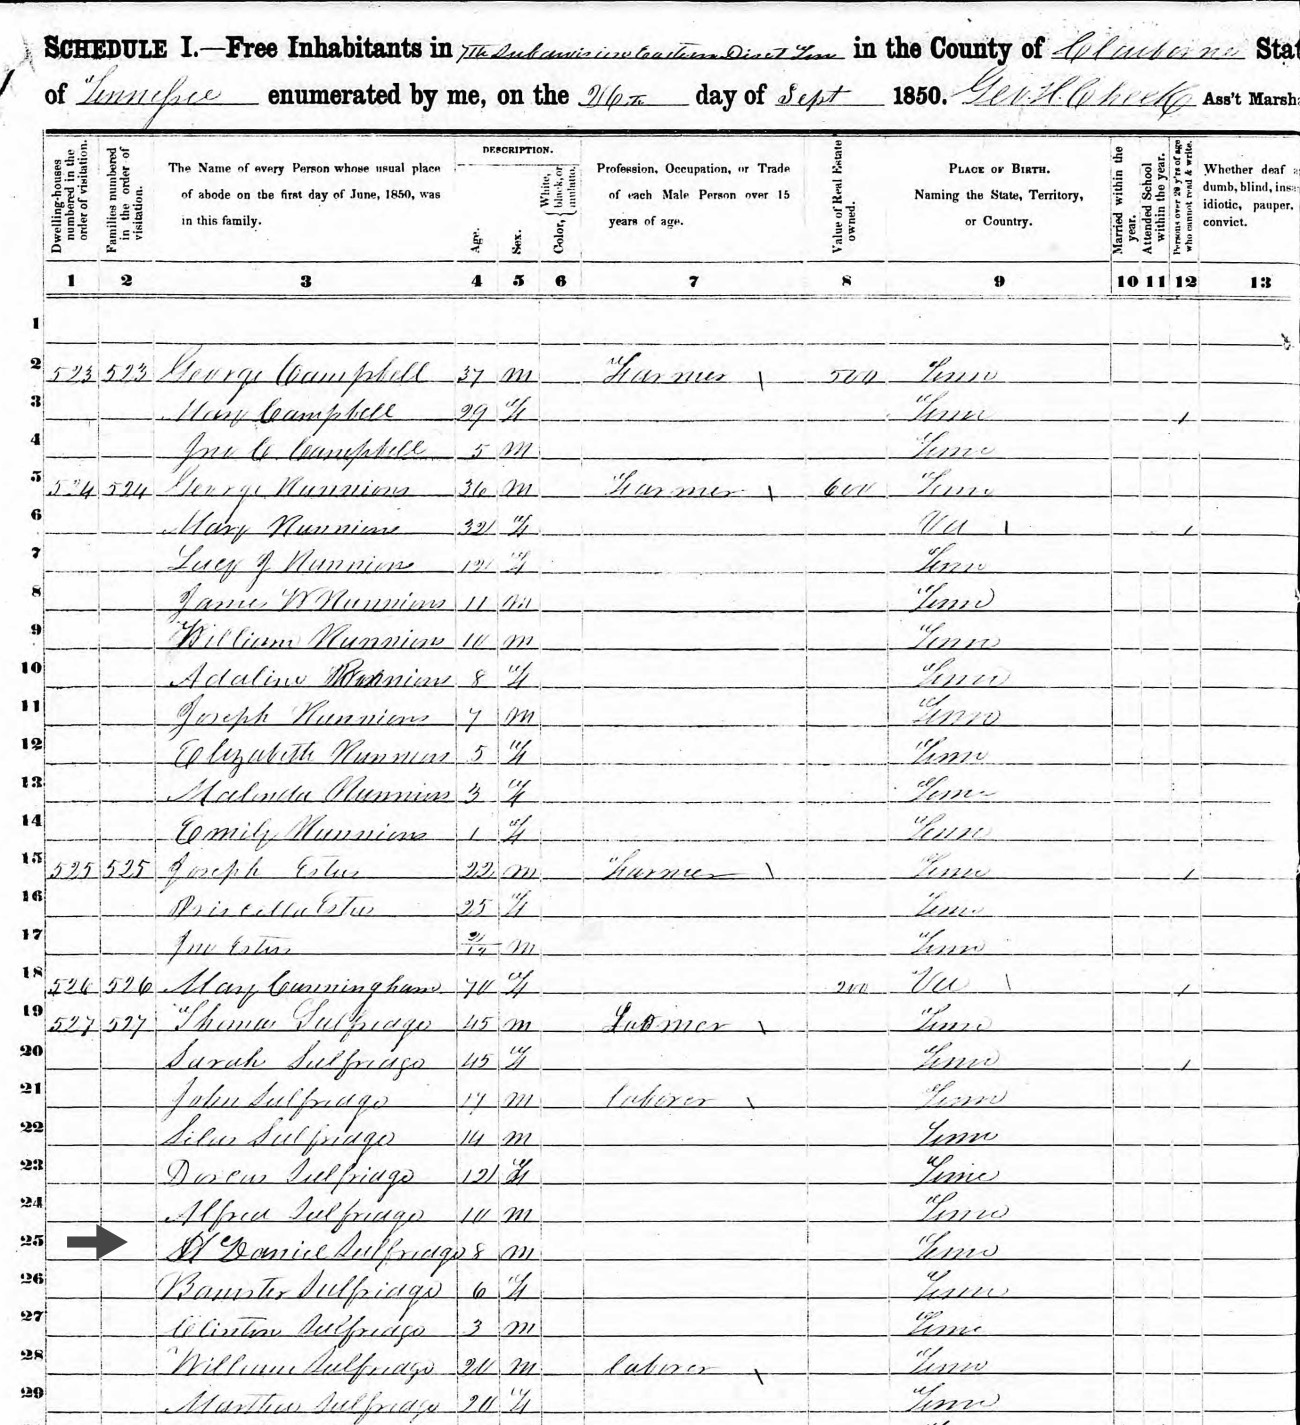 SCHEDULE I.—Free Inhabitants in 7th Subdivision Eastern Dist Ten in the County of Claiborne Stat
of Tennessee enumerated by me, on the 26th day of Sept 1850. Geo. H. Cheek Ass't Marsh
Dwelling-houses numbered in the order of visitation.
Families numbered in the order of visitation.
The Name of every Person whose usual place of abode on the first day of June, 1850, was in this family.
DESCRIPTION.
Age.
Sex.
Color, { White, black, or mulatto.
Profession, Occupation, or Trade of each Male Person over 15 years of age.
Value of Real Estate owned.
PLACE OF BIRTH. Naming the State, Territory, or Country.
Married within the year.
Attended School within the year.
Persons over 20 y'rs of age who cannot read & write.
Whether deaf a dumb, blind, insa idiotic, pauper, convict.
1 2 3 4 5 6 7 8 9 10 11 12 13
1
2 523 523 George Campbell 37 m Farmer \ 500 Tenn
3 Mary Campbell 29 F Tenn /
4 Jno C Campbell 5 m Tenn
5 524 524 George Runnions 36 m Farmer \ 600 Tenn
6 Mary Runnions 32 F Va \ /
7 Lucy J Runnions 12 F Tenn
8 James W Runnions 11 m Tenn
9 William Runnions 10 m Tenn
10 Adaline Runnions 8 F Tenn
11 Joseph Runnions 7 m Tenn
12 Elizabeth Runnions 5 F Tenn
13 Malinda Runnions 3 F Tenn
14 Emily Runnions 1 F Tenn
15 525 525 Joseph Estus 22 m Farmer \ Tenn /
16 Priscilla Estus 25 F Tenn
17 Jno Estus m Tenn
18 526 526 Mary Cunningham 70 F 200 Va \ /
19 527 527 Thomas Sulfridge 45 m \ Tenn
20 Sarah Sulfridge 45 F Tenn /
21 John Sulfridge 17 m laborer \ Tenn
22 Silas Sulfridge 14 m Tenn
23 Dorcas Sulfridge 12 F Tenn
24 Alfred Sulfridge 10 m Tenn
25 Mc Daniel Sulfridge 8 m Tenn
26 Banister Sulfridge 6 F Tenn
27 Clinton Sulfridge 3 m Tenn
28 William Sulfridge 20 m laborer \ Tenn
29 Martha Sulfridge 20 F Tenn